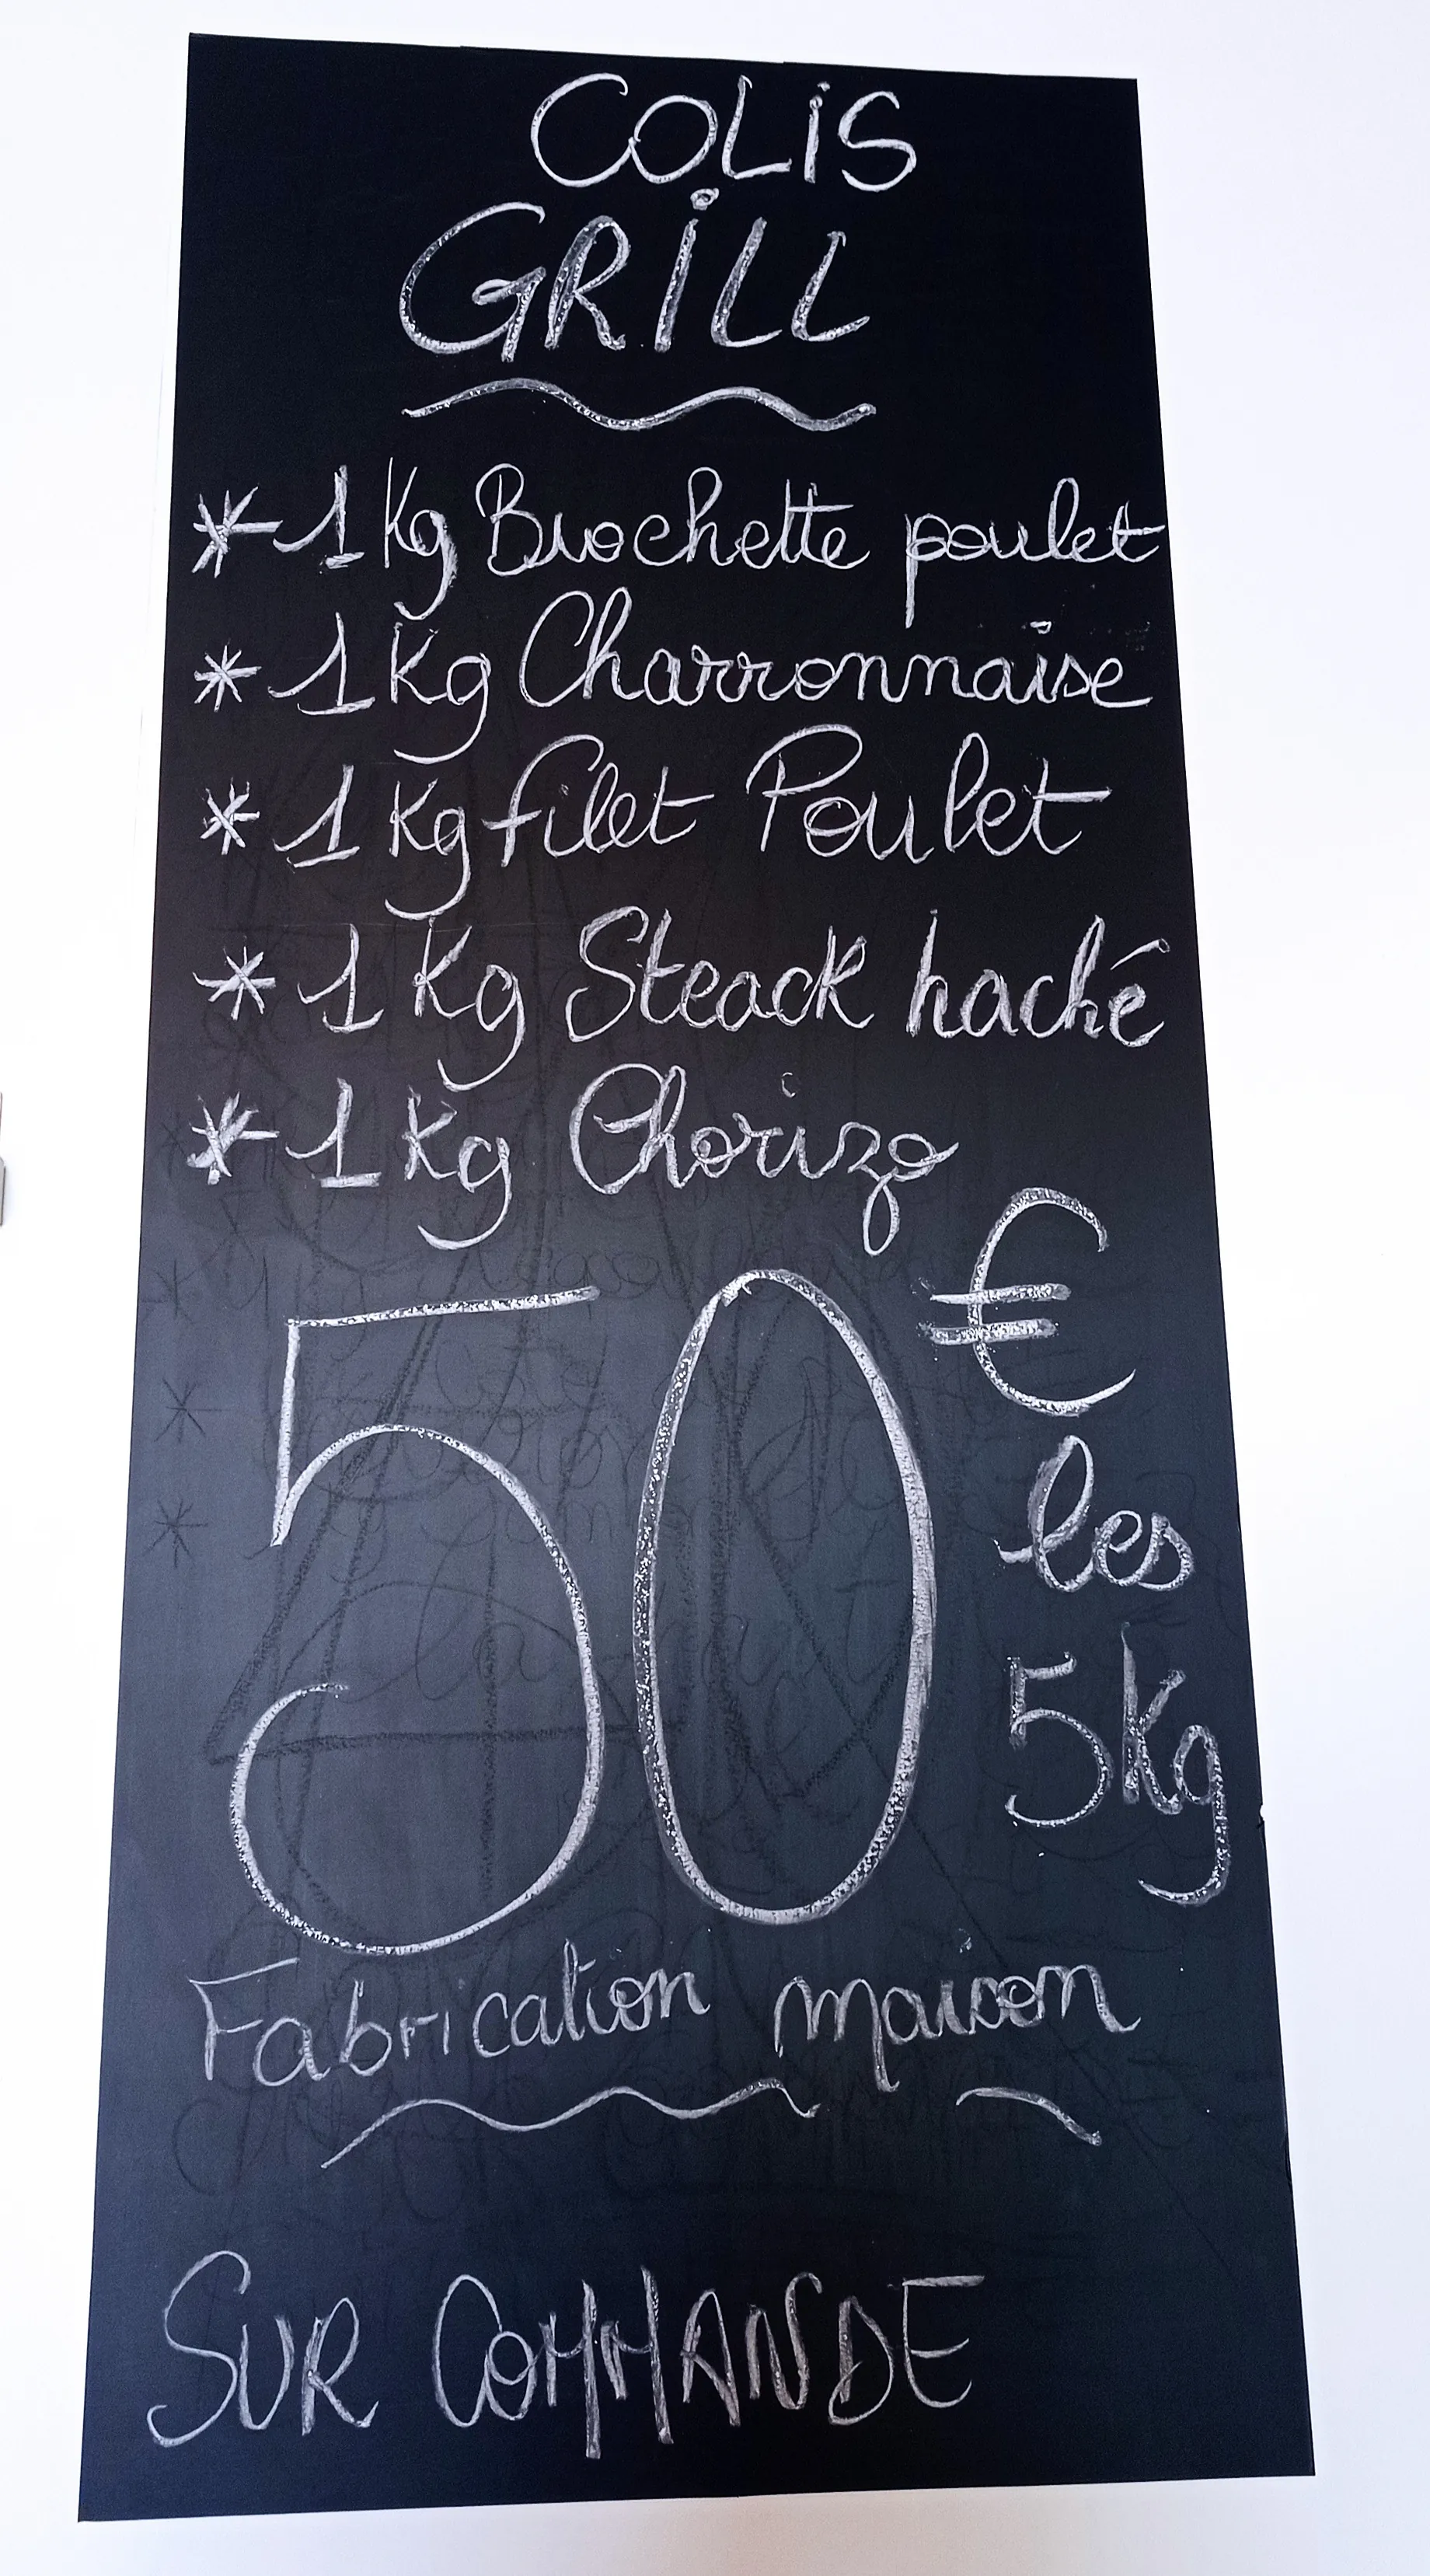 COLiS
GRiLL
* 1 Kg Brochette poulet
* 1 Kg Charronnaise
* 1 Kg filet Poulet
* 1 Kg Steack haché
* 1 Kg Chorizo
50 €
les
5 kg
Fabrication maison
SUR COMMANDE